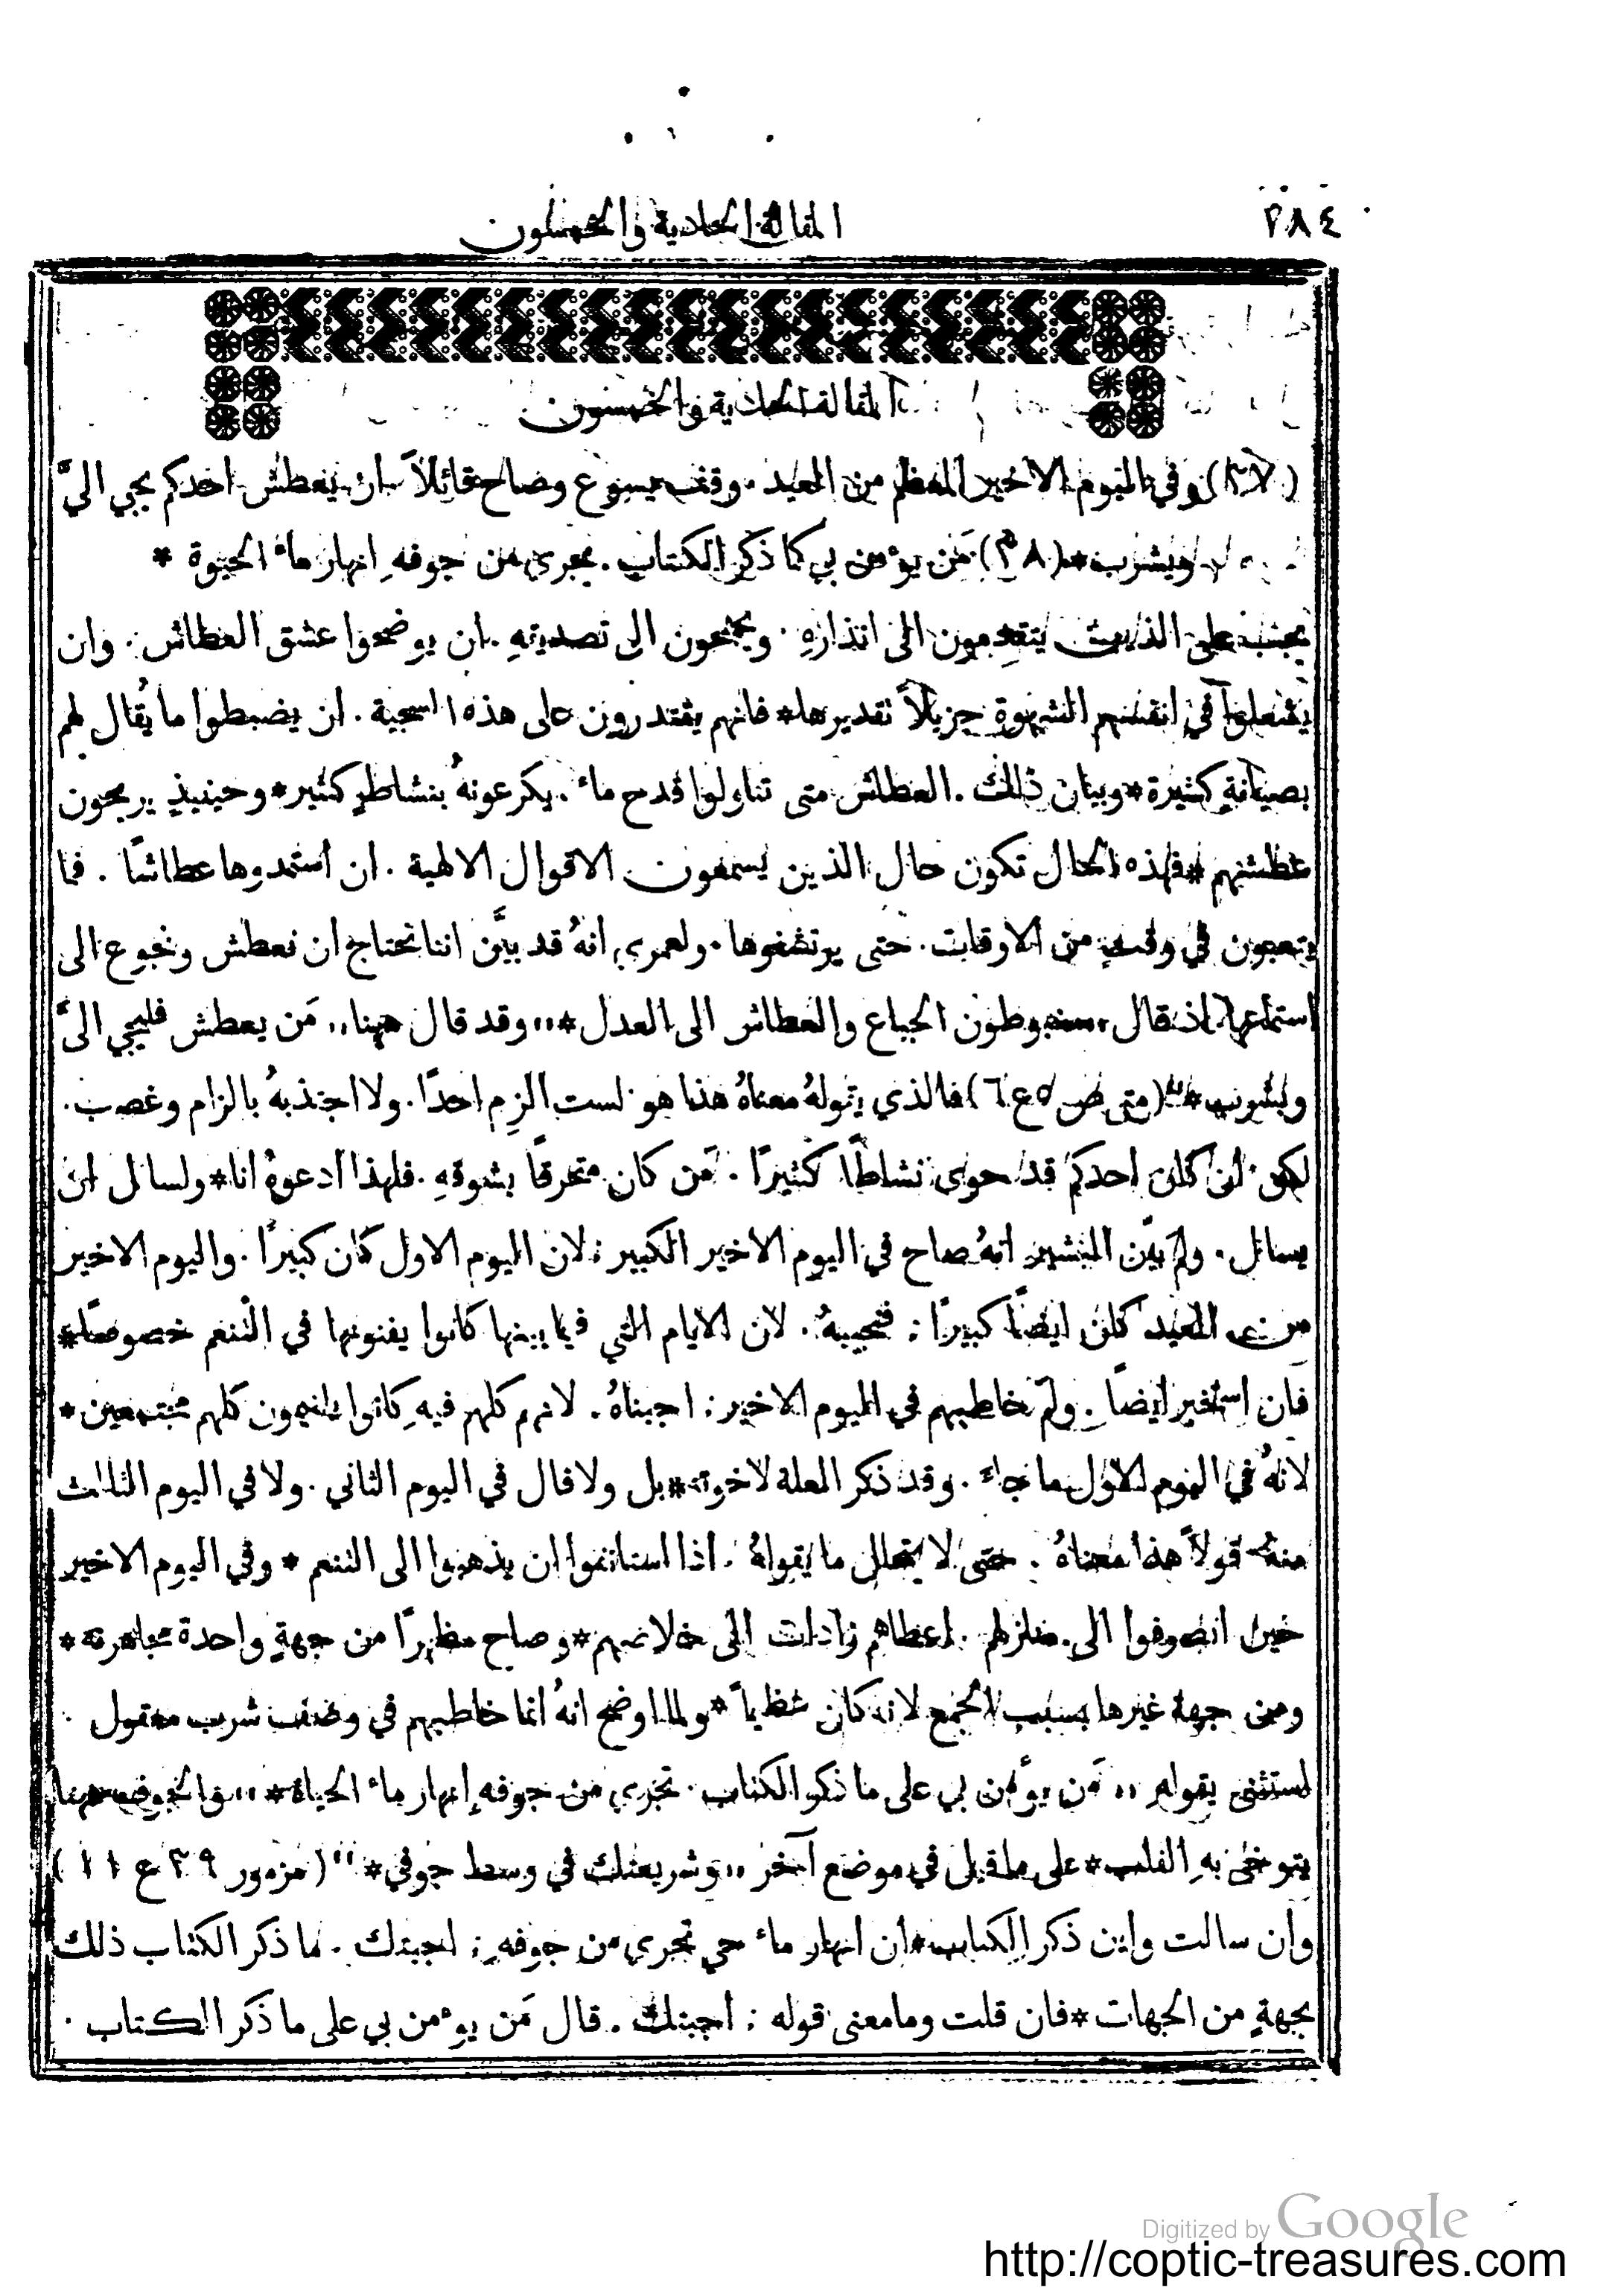 ٢٨٤
المقالة الحادية والخمسون
المقالة الحادية والخمسون
(٣٧) وفي اليوم الاخير المعظم من العيد . وقف يسوع وصاح قائلاً ان يعطش احدكم يجي اليَّ
ويشرب* (٣٨) مَن يؤمن بي كما ذكر الكتاب . تجري من جوفهِ انهار ماء الحيوة *
يجب على الذين يتقدمون الى انذارهِ . ويجنحون الى تصديقهِ . ان يوضحوا عشق العطاش . وان
يشعلوا في انفسهم الشهوة جزيلاً تقديرها* فانهم يقتدرون على هذه السجية . ان يضبطوا ما يُقال لهم
بصيانةٍ كثيرة* وبيان ذلك . العطاش متى تناولوا قدح ماء . يكرعونهُ بنشاطٍ كثير* وحينيذٍ يريحون
عطشهم* فهذه الحال تكون حال الذين يسمعون الاقوال الالهية . ان استمدوها عطاشًا . فما
يتعبون في وقتٍ من الاوقات . حتى يرتشفوها . ولعمري انهُ قد بيَّن اننا نحتاج ان نعطش ونجوع الى
استماعها. اذ قال ,, مغبوطون الجياع والعطاش الى العدل*,, وقد قال ههنا,, مَن يعطش فليجي اليَّ
وليشرب*" (متى ص ٥ ع ٦) فالذي يقولهُ معناهُ هذا هو لست الزم احدًا. ولا اجتذبهُ بالزام وغصب .
لكن ان كان احدكم قد حوى نشاطًا كثيرًا . مَن كان متحرقًا بشوقهِ . فلهذا ادعوهُ انا* ولسائل ان
يسائل . ولمَ بيَّن المبشر انهُ صاح في اليوم الاخير الكبير ; لان اليوم الاول كان كبيرًا . واليوم الاخير
من العيد كان ايضًا كبيرًا ; فنجيبهُ . لان الايام التي فيما بينها كانوا يفنونها في التنعم خصوصًا*
فان استخبر ايضًا . ولمَ خاطبهم في اليوم الاخير ; اجبناهُ . لانهم كلهم فيهِ كانوا كلهم مجتمعين *
لانهُ في اليوم الاول ما جاء . وقد ذكر العلة لاخوته* بل ولا قال في اليوم الثاني . ولا في اليوم الثالث
منهُ قولاً هذا معناهُ . حتى لا يتحلل ما يقولهُ . اذا استانفوا ان يذهبوا الى التنعم * وفي اليوم الاخير
حين انصرفوا الى منازلهم . اعطاهم زادات الى خلاصهم* وصاح مظهرًا من جهةٍ واحدة مجاهرته *
ومن جهة غيرها بسبب الجمع لانه كان عظيمًا* ولما اوضح انهُ انما خاطبهم في وصف شرب معقول .
استثنى بقولهِ ,, مَن يؤمن بي على ما ذكر الكتاب . تجري من جوفهِ انهار ماء الحياة*,, والجوف ههنا
يتوخى بهِ القلب* على ما قيل في موضع آخر ,, وشريعتك في وسط جوفي*" (مزمور ٣٩ ع ١١)
وان سالت واين ذكر الكتاب* ان انهار ماء حي تجري من جوفهِ ; اجبتك . ما ذكر الكتاب ذلك
بجهةٍ من الجهات* فان قلت وما معنى قوله ; اجبتك . قال مَن يؤمن بي على ما ذكر الكتاب .
Digitized by Google
http://coptic-treasures.com